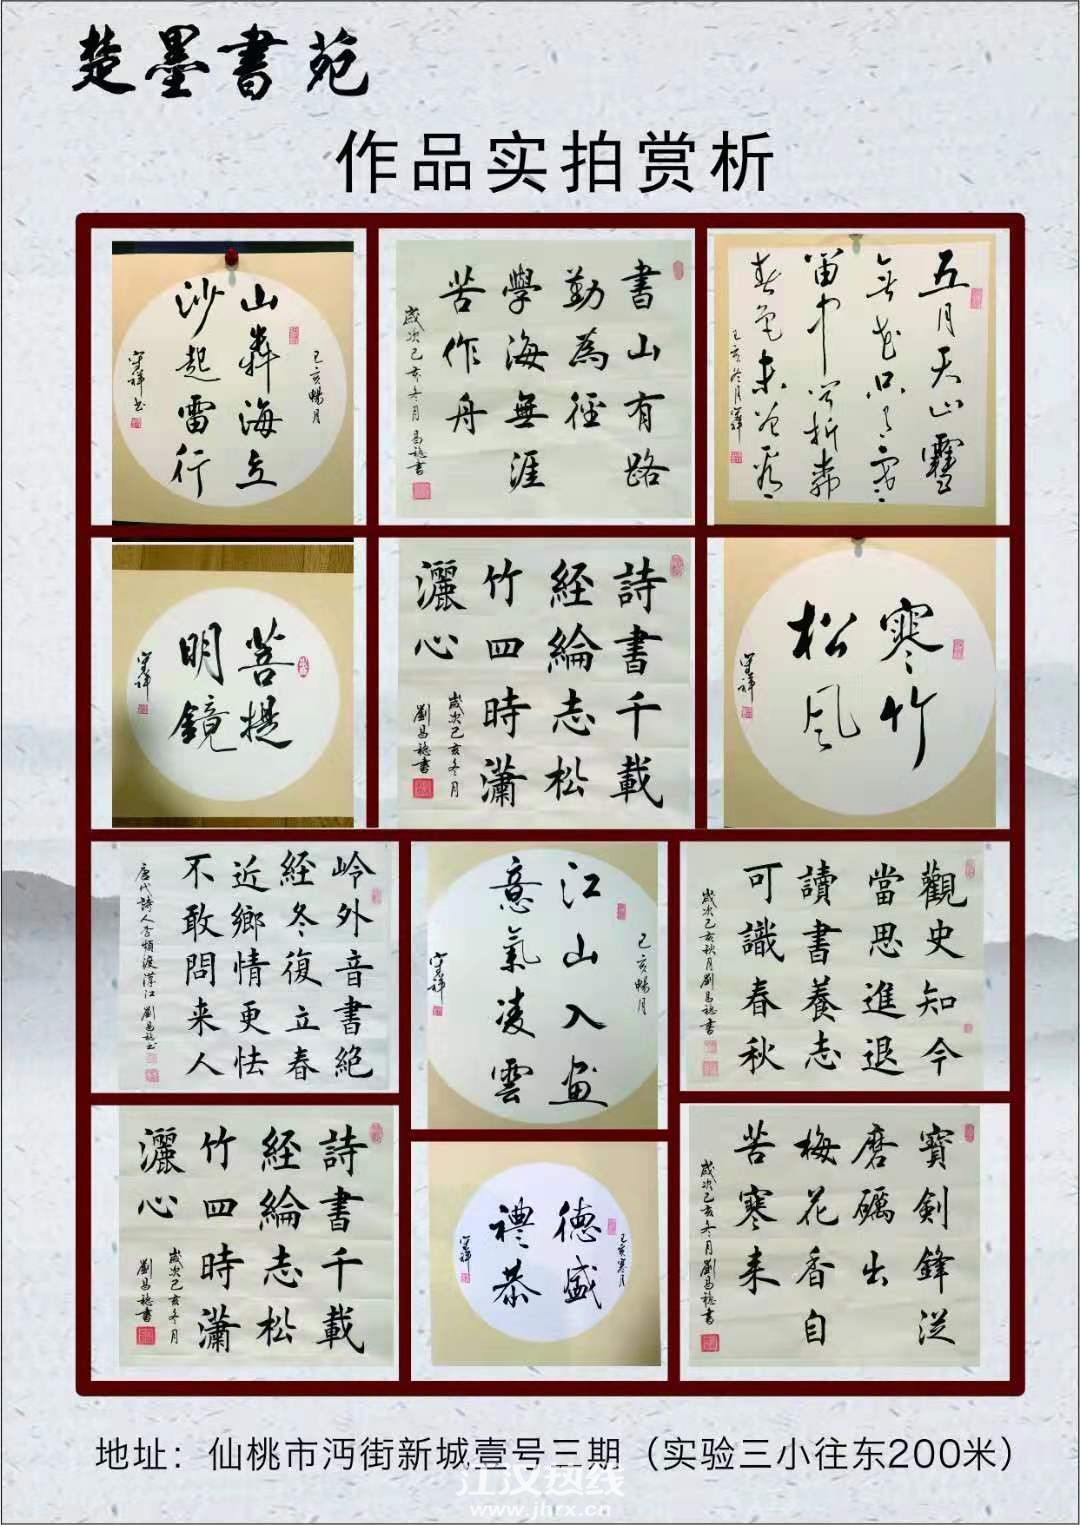 楚墨書苑
作品实拍赏析
己亥暢月
山奔海立
沙起雷行
守祥书
書山有路
勤為徑
學海無涯
苦作舟
歲次己亥冬月 昌談書
五月天山雪
無花只有寒
笛中聞折柳
春色未曾看
己亥冬月 守祥
菩提
明鏡
守祥
詩書千載
經綸志松
竹四時瀟
灑心
歲次己亥冬月
劉昌談書
寒竹
松风
守祥
岭外音書絕
經冬復立春
近鄉情更怯
不敢問来人
唐代詩人李頻渡漢江 劉昌談书
己亥暢月
江山入画
意氣凌雲
守祥
觀史知今
當思進退
讀書養志
可識春秋
歲次己亥秋月劉昌談書
詩書千載
經綸志松
竹四時瀟
灑心
歲次己亥冬月
劉昌談書
己亥寒月
德盛
禮恭
守祥
寶劍鋒從
磨礪出
梅花香自
苦寒来
歲次己亥冬月劉昌談書
地址：仙桃市沔街新城壹号三期（实验三小往东200米）
江汉热线
www.jhrx.cn